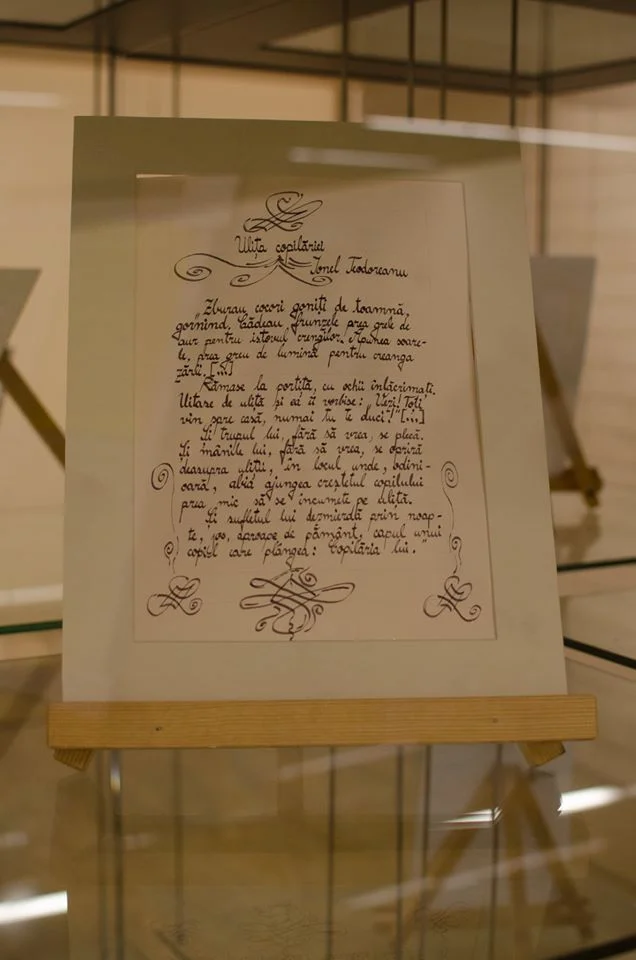 Ulița copilăriei
Ionel Teodoreanu
„Zburau cocori goniți de toamnă,
gornind. Cădeau frunzele prea grele de
aur pentru istovul crengilor. Apunea soare-
le, prea greu de lumină pentru creanga
zării. [...]
Rămase la portiță, cu ochii înlăcrimați.
Uitase de uliță și ea îi vorbise: „Vezi! Toți
vin spre casă, numai tu te duci!” [...]
Și trupul lui, fără să vrea, se plecă.
Și mânile lui, fără să vrea, se opriră
deasupra uliții, în locul unde, odini-
oară, abia ajungea creștetul copilului
prea mic să se încumete pe uliță.
Și sufletul lui dezmierdă prin noap-
te, jos, aproape de pământ, capul unui
copil care plângea: Copilăria lui.”